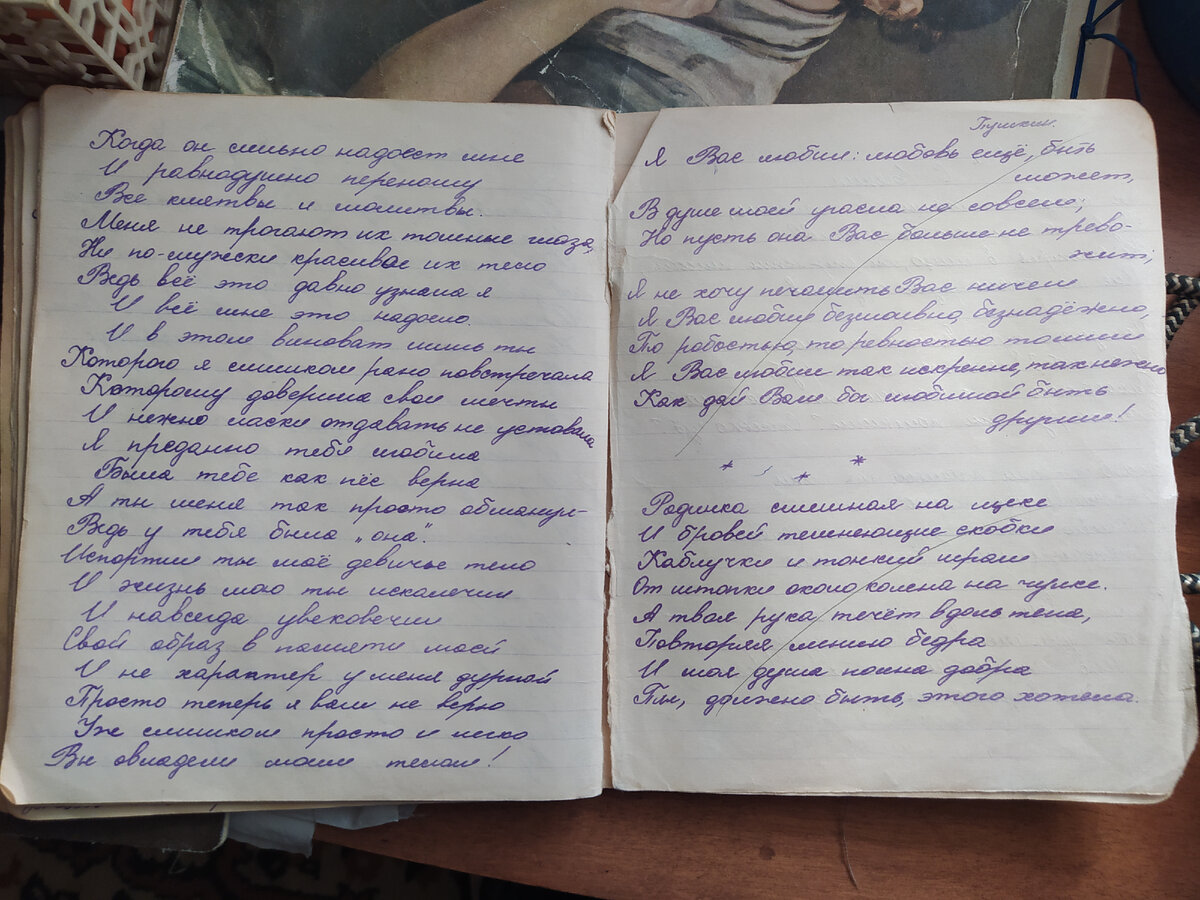 Когда он сильно надоест мне
И равнодушно переношу
Все клятвы и молитвы.
Меня не трогают их томные глаза,
Ни по-мужски красивое их тело
Ведь всё это давно узнала я
И всё мне это надоело.
И в этом виноват лишь ты
Которого я слишком рано повстречала
Которому доверила свои мечты
И нежно ласки отдавать не уставала
Я преданно тебя любила
Была тебе как пёс верна
А ты меня так просто обманул-
Ведь у тебя была „она".
Испортил ты моё девичье тело
И жизнь мою ты искалечил
И навсегда увековечил
Свой образ в памяти моей
И не характер у меня дурной
Просто теперь я вам не верю
Уж слишком просто и легко
Вы овладели моим телом!
Пушкин.
Я Вас любил: любовь ещё, быть
может,
В душе моей угасла не совсем;
Но пусть она Вас больше не трево-
жит;
Я не хочу печалить Вас ничем
Я Вас любил безмолвно, безнадёжно,
То робостью, то ревностью томим
Я Вас любил так искренне, так нежно
Как дай Вам бы любимой быть
другим!
* * *
Родинка смешная на щеке
И бровей темнеющие скобки
Каблучки и тонкий шрам
От штопки около колена на чулке.
А твоя рука течёт вдоль тела,
Повторяя линию бедра
И моя душа полна добра
Ты, должно быть, этого хотела.